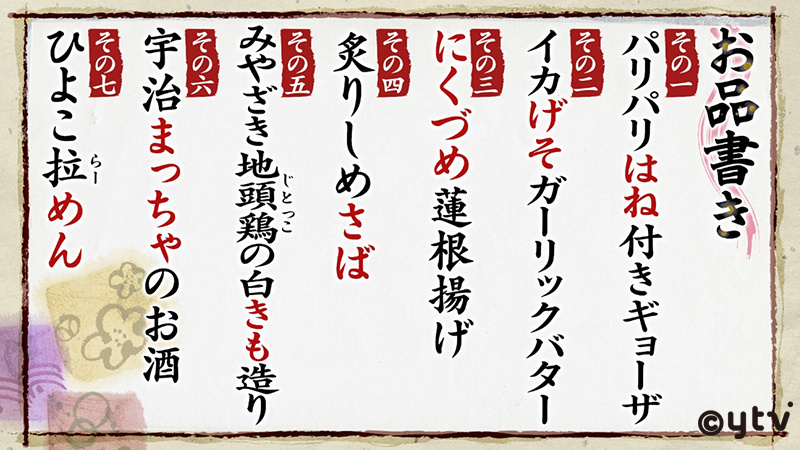 お品書き
その一
パリパリはね付きギョーザ
その二
イカげそガーリックバター
その三
にくづめ蓮根揚げ
その四
炙りしめさば
その五
みやざき地頭鶏の白きも造り
じとっこ
その六
宇治まっちゃのお酒
その七
ひよこ拉めん
らー
©ytv